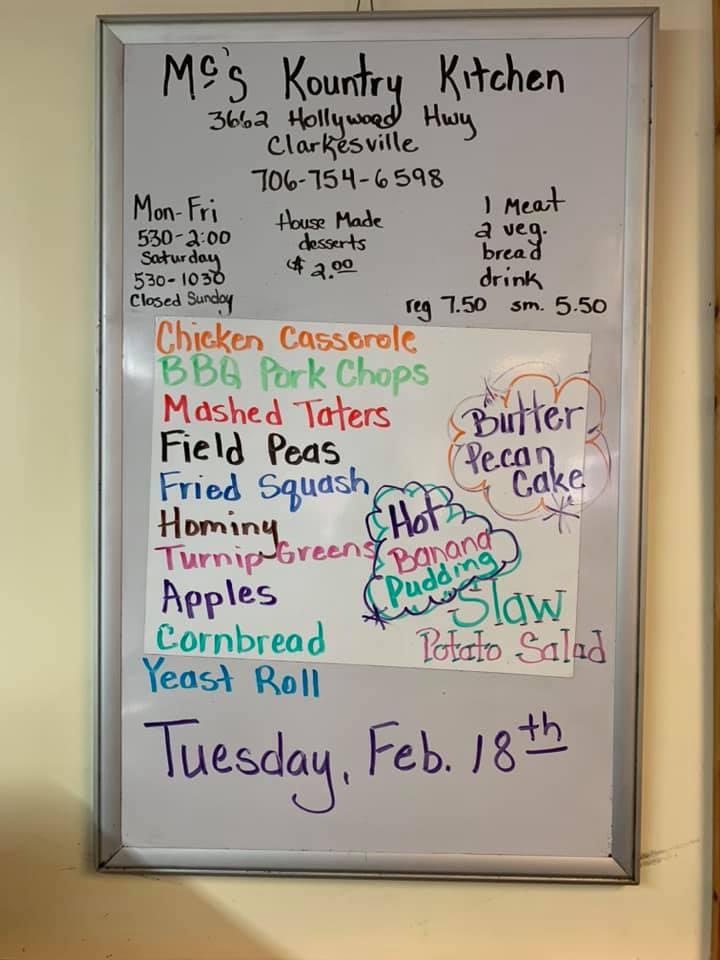 Mc's Kountry Kitchen
3662 Hollywood Hwy
Clarkesville
706-754-6598
Mon-Fri
530-2:00
Saturday
530-1030
Closed Sunday
House Made
desserts
$2.00
1 Meat
2 veg.
bread
drink
reg 7.50 sm. 5.50
Chicken Casserole
BBQ Pork Chops
Mashed Taters
Field Peas
Fried Squash
Hominy
Turnip Greens
Apples
Cornbread
Yeast Roll
Butter
Pecan
Cake
Hot
Banana
Pudding
Slaw
Potato Salad
Tuesday, Feb. 18th